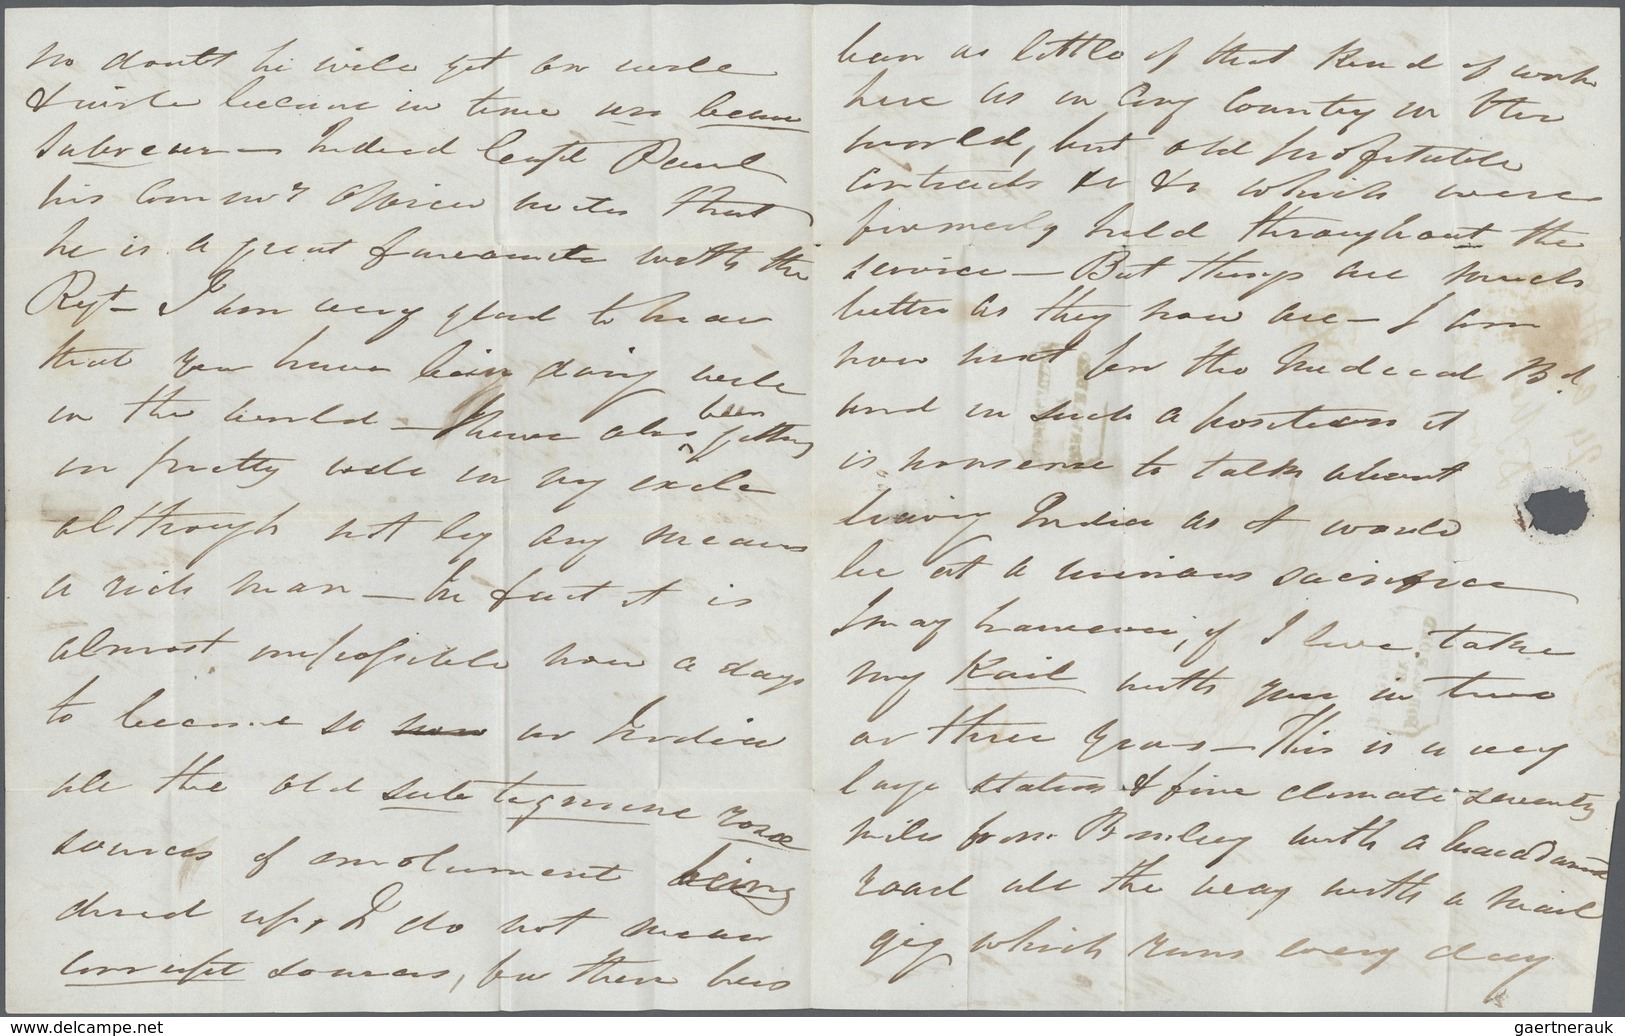 No doubt he will get on well
& wish become in time un beau
Sabreur — Indeed Capt Paul
his Comm'g Officer writes that
he is a great favourite with the
Regt — I am very glad to hear
that you have been doing well
in the world — I have also been getting
on pretty well in my exile
although not by any means
a rich man — In fact it is
almost impossible now a days
to become so in India
all the old sub tegmine rosæ
sources of emolument being
dried up, I do not mean
corrupt sources, for there has
been as little of that kind of work
here as in any Country in the
world, but old profitable
contracts &c &c which were
formerly held throughout the
service — But things are much
better as they now are — I am
now next for the Medical Bd.
and in such a position it
is nonsense to talk about
leaving India as it would
be at a ruinous sacrifice
I may however, if I live, take
my Kail with you in two
or three years — This is a very
large station & fine climate seventy
miles from Bombay with a macadamd
road all the way with a mail
gig which runs every day
gaertnerauk
delcampe.net